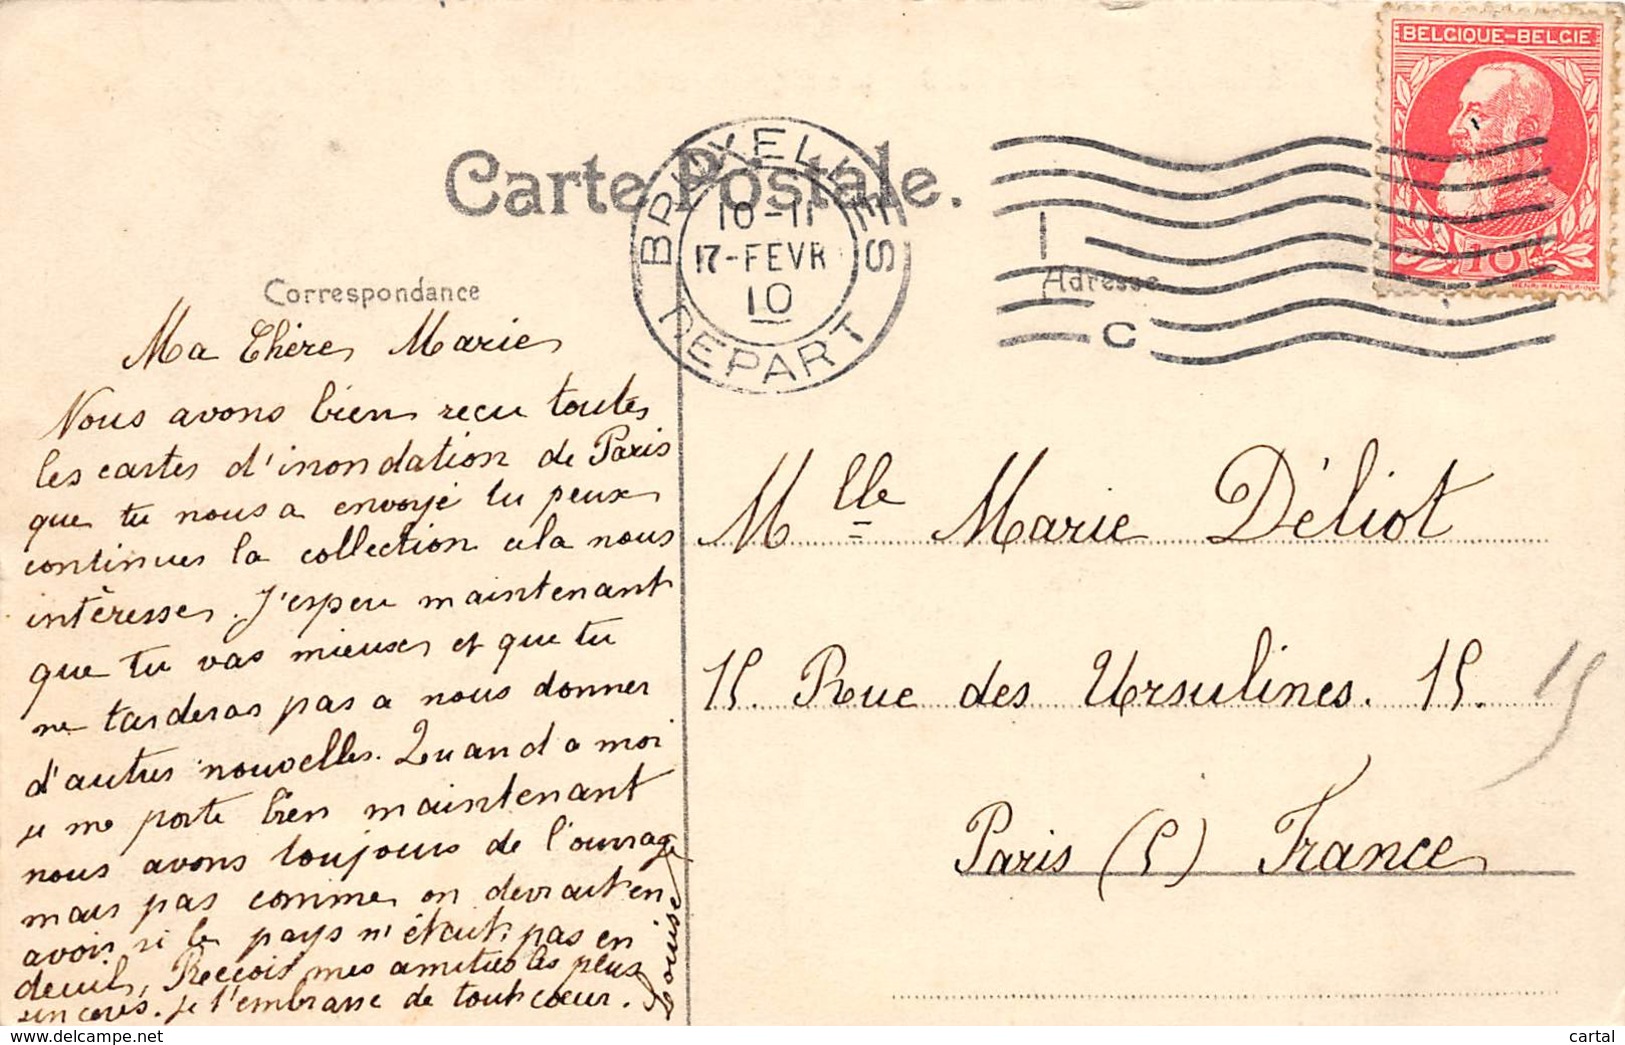 BELGIQUE-BELGIE
10
Carte Postale.
BRUXELLES
10-11
17-FEVR
10
DEPART
C
Correspondance
Adresse
Ma Chère Marie
Nous avons bien reçu toutes
les cartes d'inondation de Paris
que tu nous a envoyé tu peux
continuer la collection cela nous
intéresse. J'espere maintenant
que tu vas mieux et que tu
ne tarderas pas a nous donner
d'autres nouvelles. Quand a moi
je me porte bien maintenant
nous avons toujours de l'ouvrage
mais pas comme on devrait en
avoir si le pays n'était pas en
deuil, Reçois mes amitiés les plus
sincères. je t'embrasse de tout cœur.
Louise
Mlle Marie Déliot
15. Rue des Ursulines. 15.
15
Paris (5) France
delcampe.net
cartal